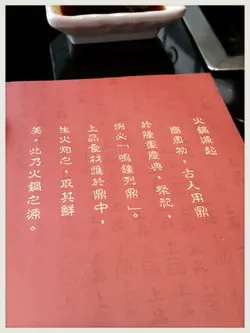 火鍋源起
商周初，古人用鼎
於隆重慶典，祭祀，
例必「鳴鐘列鼎」。
上品食材匯於鼎中，
生火灼之，取其鮮
美，此乃火鍋之源。